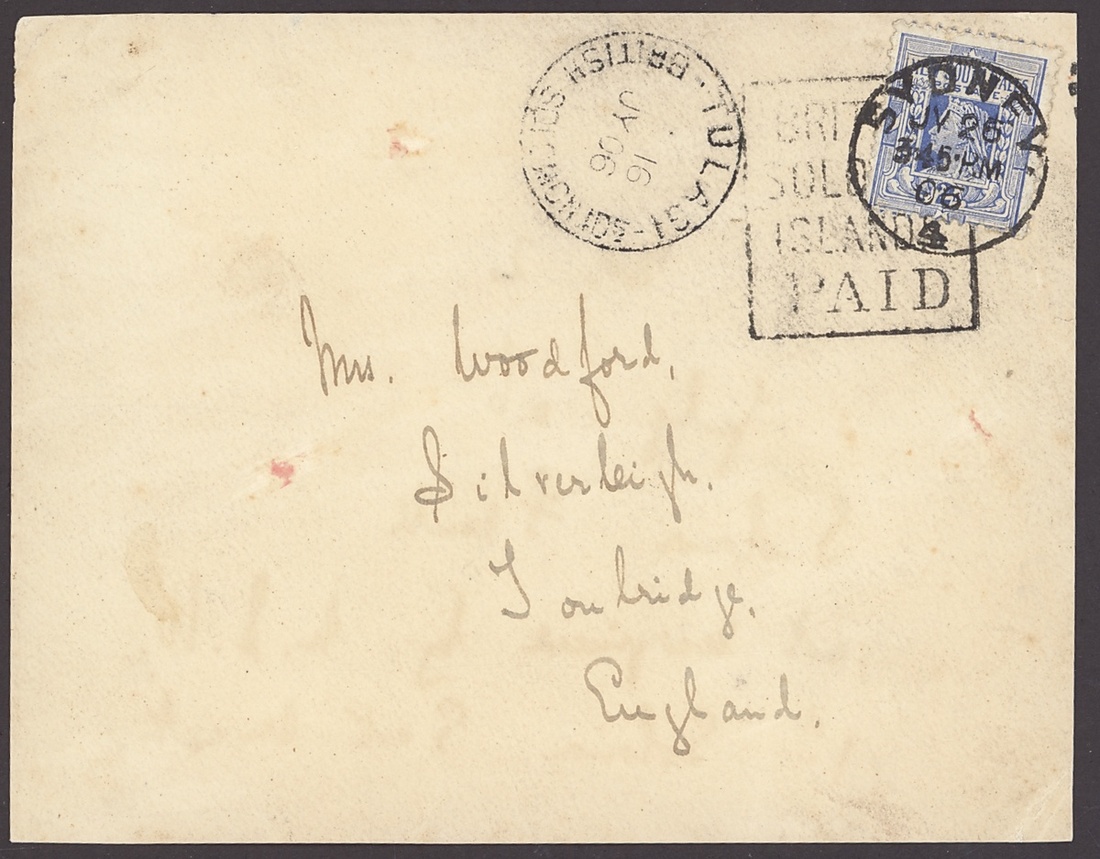 TULAGI - SOLOMON IDS BRITISH
16
JY 06
BRIT
SOLO
ISLANDS
PAID
SYDNEY.
JY 26
3 45·PM
06
4
Mrs. Woodford,
Silverleigh.
Tonbridge.
England.